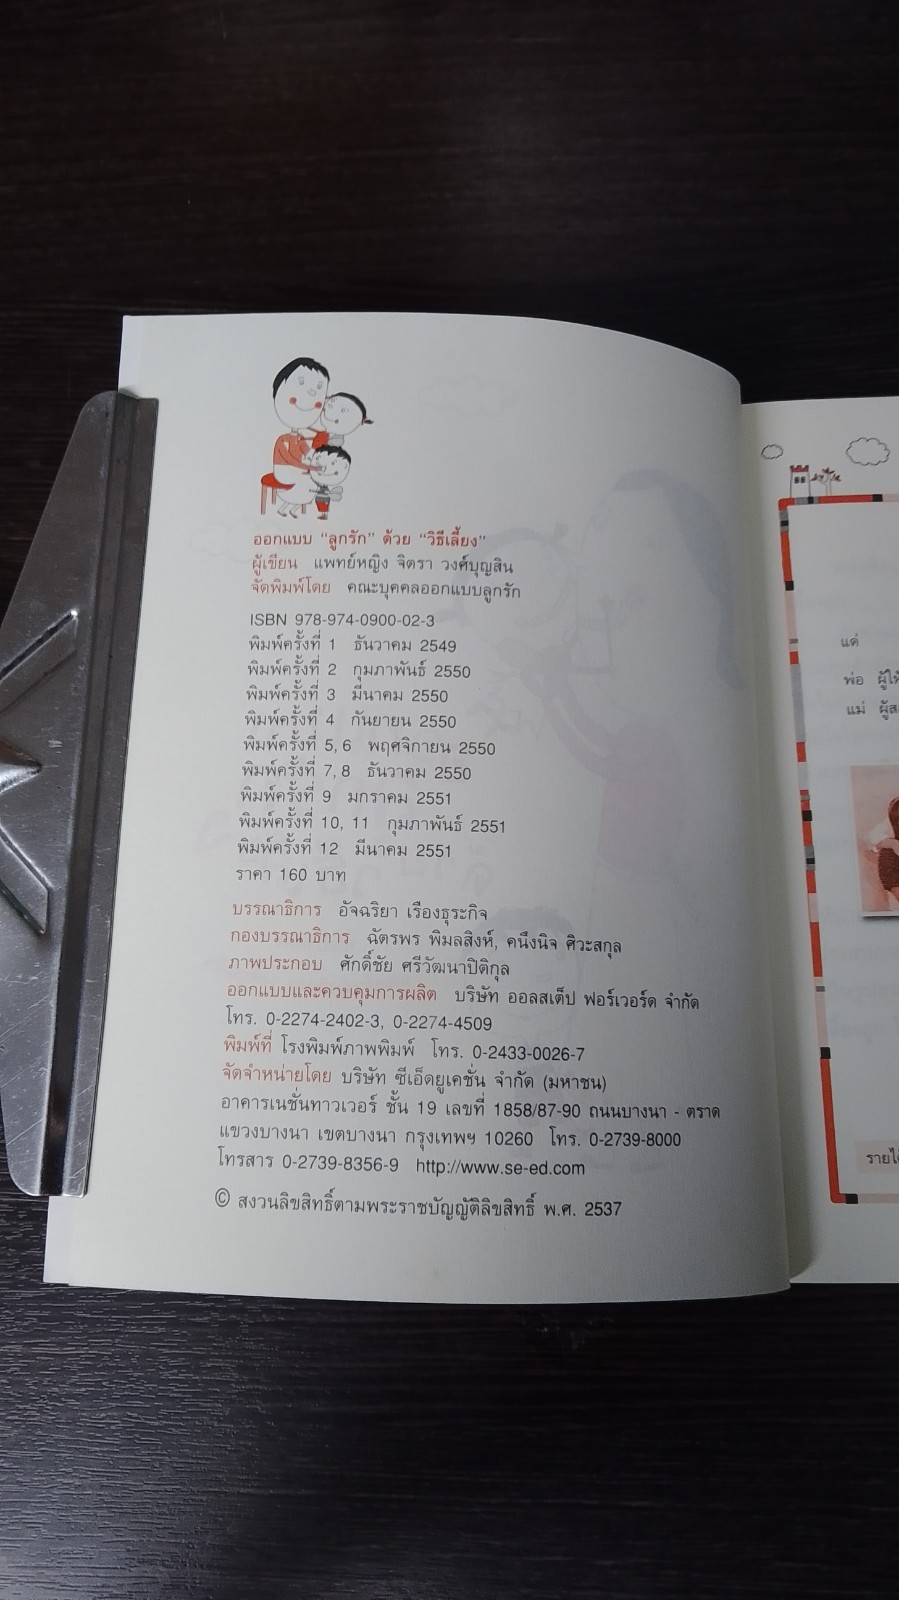 ออกแบบ "ลูกรัก" ด้วย "วิธีเลี้ยง"
ผู้เขียน แพทย์หญิง จิตรา วงศ์บุญสิน
จัดพิมพ์โดย คณะบุคคลออกแบบลูกรัก
ISBN 978-974-0900-02-3
พิมพ์ครั้งที่ 1 ธันวาคม 2549
พิมพ์ครั้งที่ 2 กุมภาพันธ์ 2550
พิมพ์ครั้งที่ 3 มีนาคม 2550
พิมพ์ครั้งที่ 4 กันยายน 2550
พิมพ์ครั้งที่ 5, 6 พฤศจิกายน 2550
พิมพ์ครั้งที่ 7, 8 ธันวาคม 2550
พิมพ์ครั้งที่ 9 มกราคม 2551
พิมพ์ครั้งที่ 10, 11 กุมภาพันธ์ 2551
พิมพ์ครั้งที่ 12 มีนาคม 2551
ราคา 160 บาท
บรรณาธิการ อัจฉริยา เรืองธุระกิจ
กองบรรณาธิการ ฉัตรพร พิมลสิงห์, คนึงนิจ ศิวะสกุล
ภาพประกอบ ศักดิ์ชัย ศรีวัฒนาปิติกุล
ออกแบบและควบคุมการผลิต บริษัท ออลสเต็ป ฟอร์เวอร์ด จำกัด
โทร. 0-2274-2402-3, 0-2274-4509
พิมพ์ที่ โรงพิมพ์ภาพพิมพ์ โทร. 0-2433-0026-7
จัดจำหน่ายโดย บริษัท ซีเอ็ดยูเคชั่น จำกัด (มหาชน)
อาคารเนชั่นทาวเวอร์ ชั้น 19 เลขที่ 1858/87-90 ถนนบางนา - ตราด
แขวงบางนา เขตบางนา กรุงเทพฯ 10260 โทร. 0-2739-8000
โทรสาร 0-2739-8356-9 http://www.se-ed.com
© สงวนลิขสิทธิ์ตามพระราชบัญญัติลิขสิทธิ์ พ.ศ. 2537
แด่
พ่อ
แม่